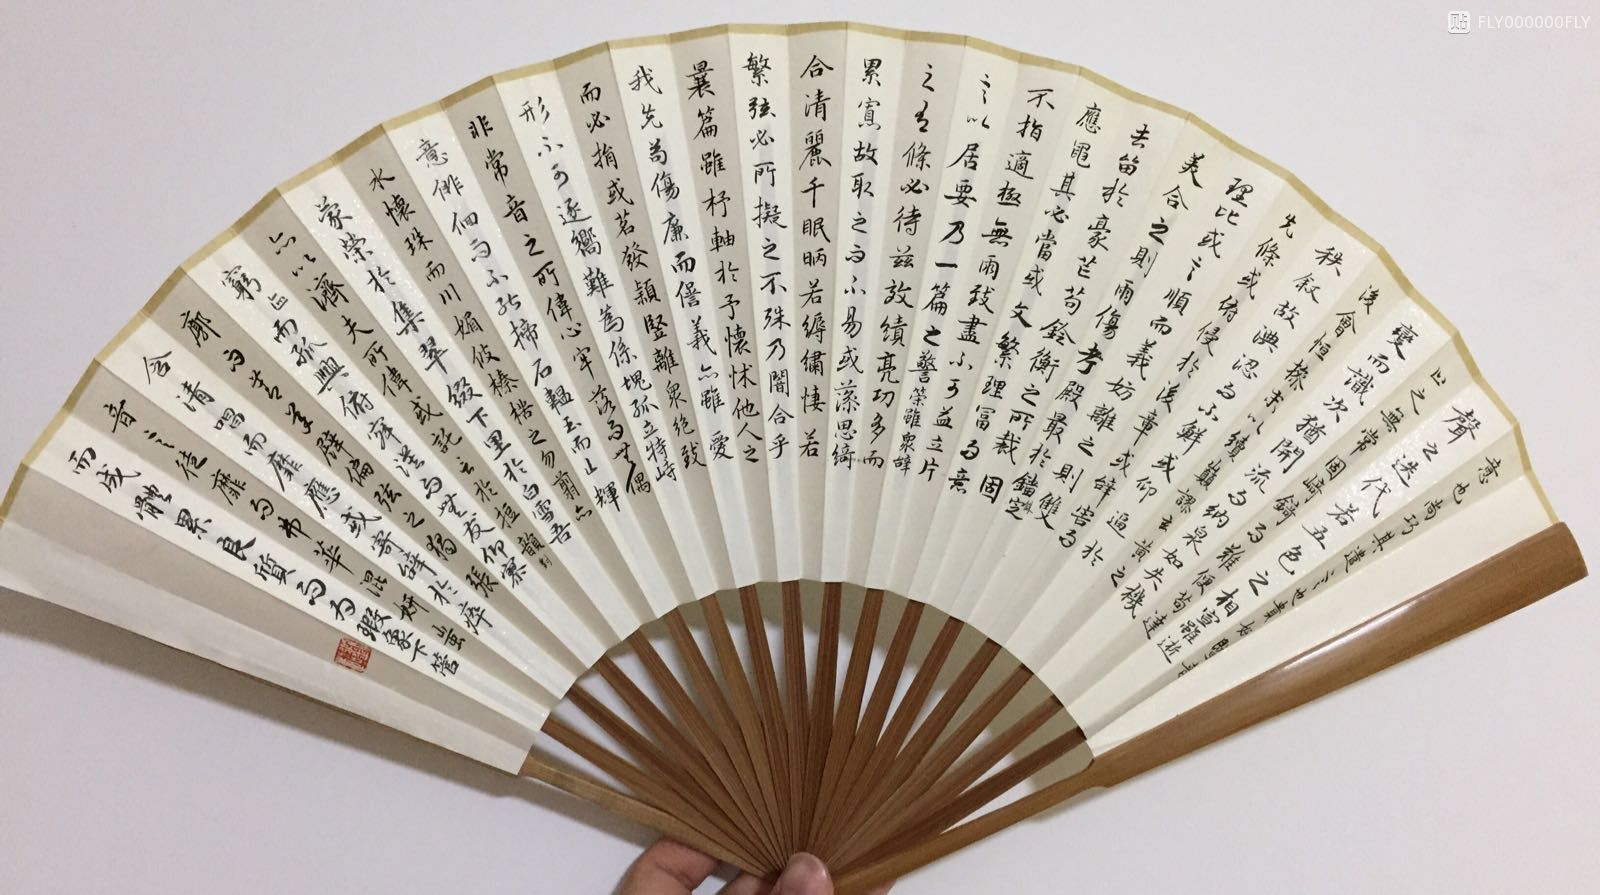 意也尚巧其遣言也貴妍暨音
聲之迭代若五色之相宣雖逝
止之無常固崎錡而難便苟達
變而識次猶開流而納泉如失機
後會恒操末以續巔謬玄黃之
秩叙故淟涊而不鮮或仰逼於
先條或俯侵於後章或辭害而
理比或言順而義妨離之則雙
美合之則兩傷考殿最於錙銖定
去留於豪芒苟銓衡之所裁固
應繩其必當或文繁理富而意
不指適極無兩致盡不可益立片
言以居要乃一篇之警策雖衆辭
之有條必待兹效績亮功多而
累寡故取之而不易或藻思綺
合清麗千眠昞若縟繡悽若
繁弦必所擬之不殊乃闇合乎
曩篇雖杼軸於予懷怵他人之
我先苟傷廉而愆義亦雖愛
而必捐或苕發穎豎離衆絶致
形不可逐嚮難為係塊孤立特峙
非常音之所偉心牢落而無偶
意俳佪而不能揥石韞玉而山輝
水懷珠而川媚彼榛楛之勿翦亦
蒙榮於集翠綴下里於白雪吾
亦以濟夫所偉或託言於短韻對
窮迹而孤興俯寂漠而無友仰寥
廓而莫承譬偏弦之獨張
含清唱而靡應或寄辭於瘁
音言徒靡而弗華混妍蚩
而成體累良質而為瑕象下管
FLY000000FLY